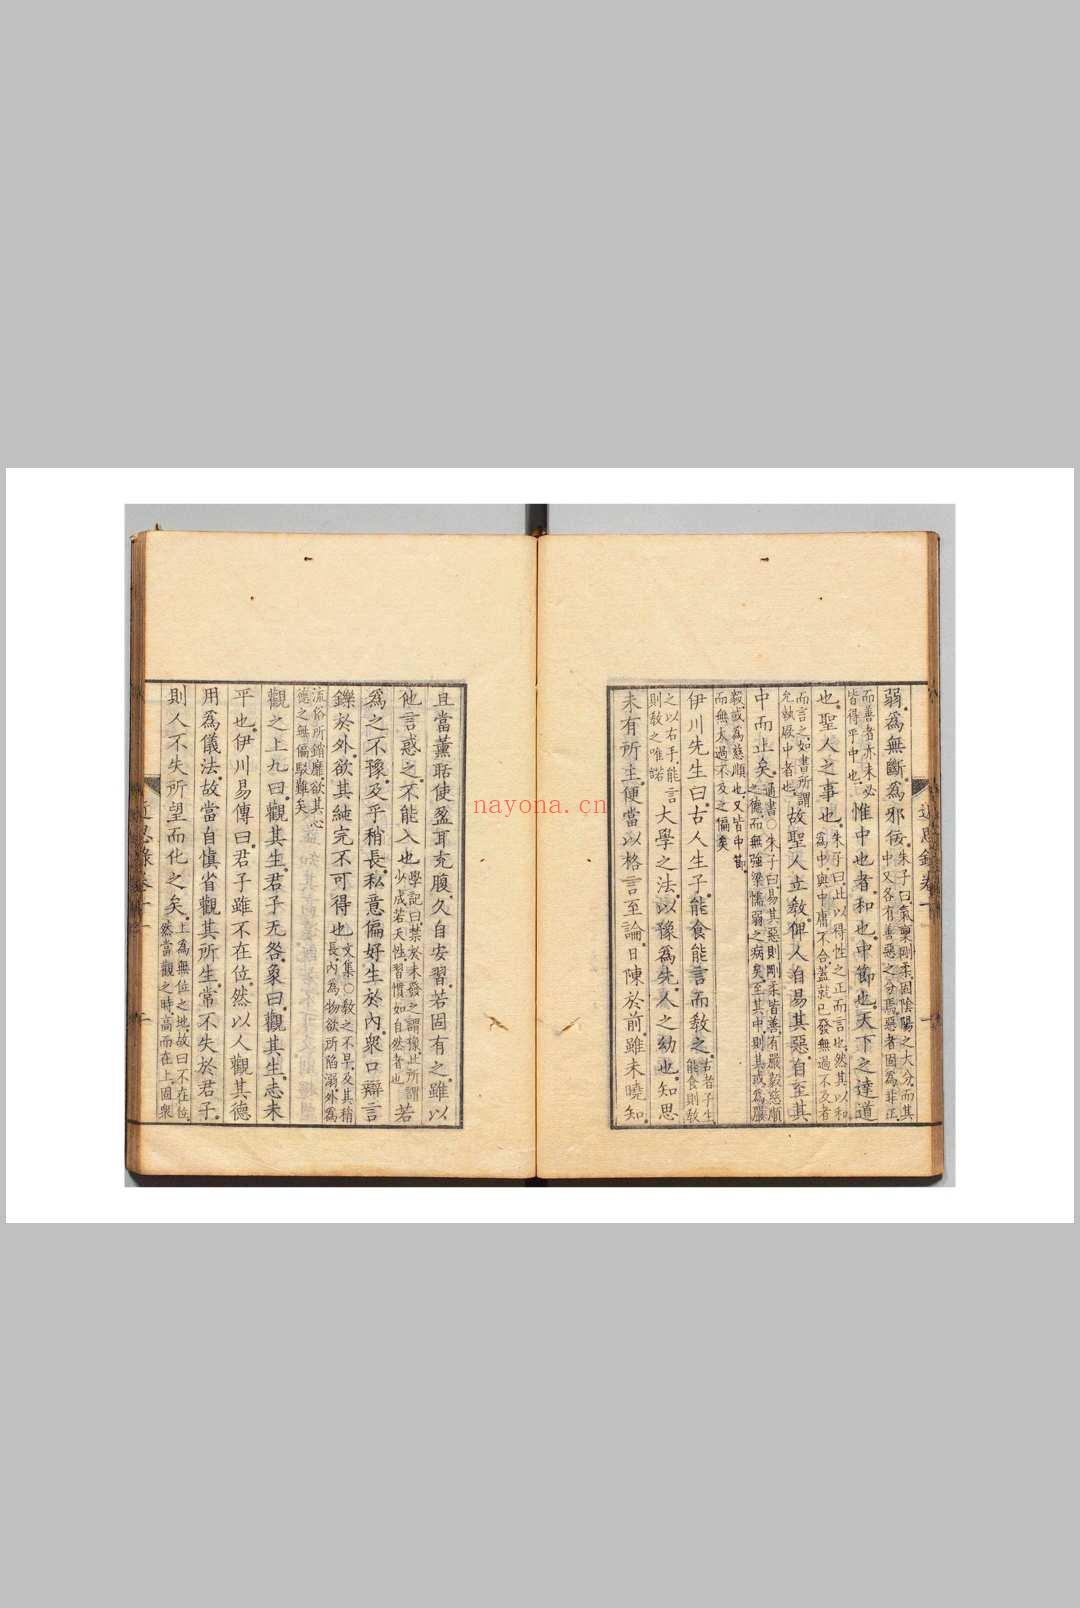 弱。為無斷。為邪佞。朱子曰氣稟剛柔固陰陽之大分而其
中又各有善惡之分焉惡者固為非正
而善者亦未必
皆得平中也惟中也者。和也。中節也。天下之達道
也。聖人之事也。朱子曰此以得性之正而言也然其以和
為中與中庸不合蓋就已發無過不及者
而言之如書所謂
允執厥中者也故聖人立教。俾人自易其惡。自至其
中而止矣。通書○朱子曰易其惡則剛柔皆善有嚴毅慈順
之德而無強梁懦弱之病矣至其中則其或為嚴
毅或為慈順也又皆中節
而無太過不及之偏矣
伊川先生曰。古人生子。能食能言而教之。古者子生
能食則教
之以右手能言
則教之唯諾大學之法。以豫為先。人之幼也。知思
未有所主。便當以格言至論。日陳於前。雖未曉知。
且當薰聒使盈耳充腹。久自安習。若固有之。雖以
他言惑之。不能入也。學記曰禁於未發之謂豫此所謂
少成若天性習慣如自然者也若
為之不豫。及乎稍長。私意偏好生於內。眾口辯言
鑠於外。欲其純完不可得也。文集○教之不早及其稍
長內為物欲所陷溺外為
流俗所銷靡欲其心
德之無偏駁難矣
觀之上九曰。觀其生。君子无咎。象曰。觀其生。志未
平也。伊川易傳曰。君子雖不在位。然以人觀其德
用為儀法。故當自慎省。觀其所生。常不失於君子。
則人不失所望而化之矣。上為無位之地故曰不在位
然當觀之時高而在上固衆
近思錄卷十一
nayona.cn